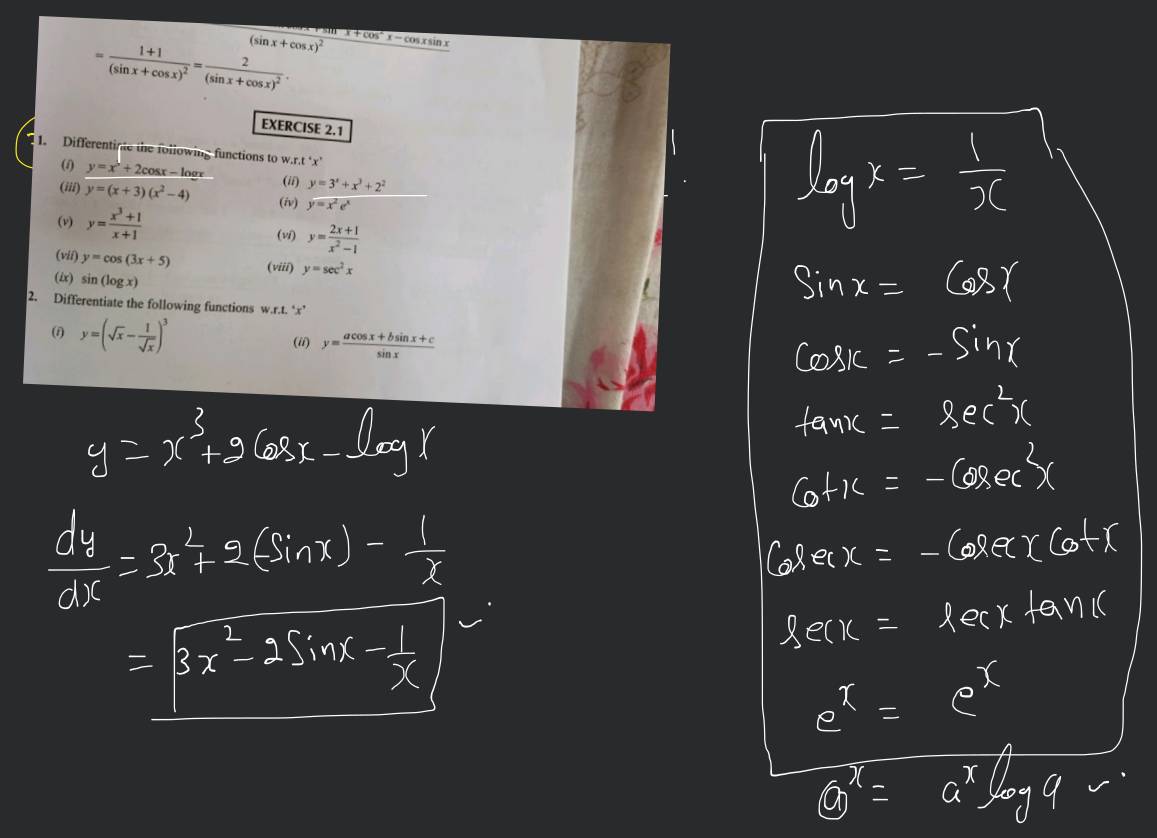 = 1+1/(sin x + cos x)² = 2/(sin x + cos x)².
(sin x + cos x)²
x + cos² x − cos x sin x
EXERCISE 2.1
1. Differentiate the following functions to w.r.t 'x'
(i) y = x³ + 2cosx − logx
(ii) y = 3ˣ + x³ + 2²
(iii) y = (x + 3) (x² − 4)
(iv) y = x² eˣ
(v) y = x³ + 1/x + 1
(vi) y = 2x + 1/x² − 1
(vii) y = cos (3x + 5)
(viii) y = sec² x
(ix) sin (log x)
2. Differentiate the following functions w.r.t. 'x'
(i) y = (√x − 1/√x)³
(ii) y = a cos x + b sin x + c/sin x
y = x³ + 2 Cosx − log x
dy/dx = 3x² + 2(−Sinx) − 1/x
= 3x² − 2 Sinx − 1/x
log x = 1/x
Sinx = Cosx
Cosx = − Sinx
tanx = sec²x
Cotx = − Cosec²x
Cosecx = − Cosecx Cotx
secx = secx tanx
eˣ = eˣ
aˣ = aˣ log a